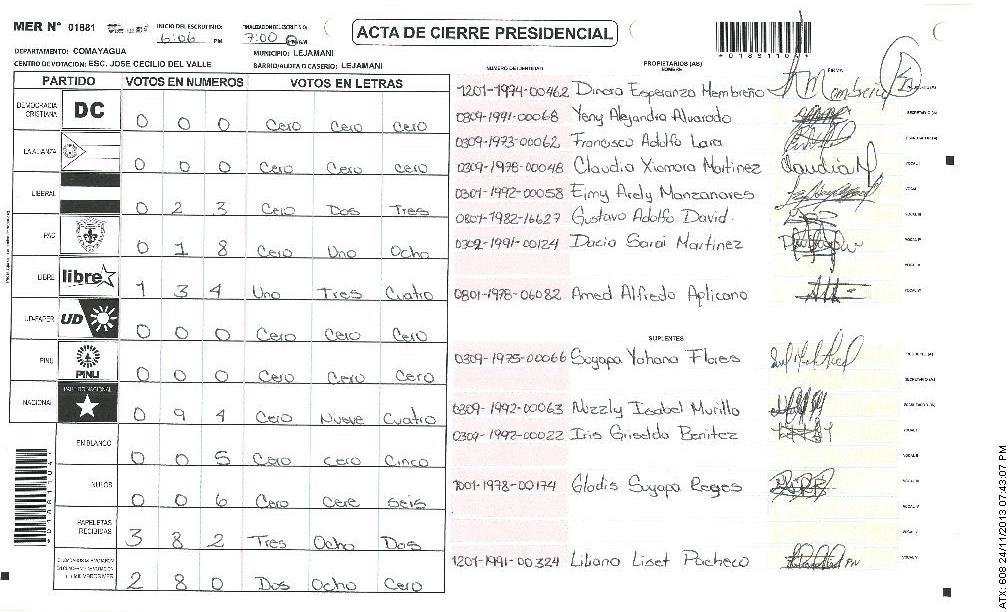 MER N° 01881
INICIO DEL ESCRUTINIO: 6:06 PM
7:00 PM
ACTA DE CIERRE PRESIDENCIAL
*01881104*
DEPARTAMENTO: COMAYAGUA
MUNICIPIO: LEJAMANI
CENTRO DE VOTACION: ESC. JOSE CECILIO DEL VALLE
BARRIO/ALDEA O CASERIO: LEJAMANI
PARTIDO VOTOS EN NUMEROS VOTOS EN LETRAS
DEMOCRACIA CRISTIANA DC 0 0 0 Cero Cero Cero
LA ALIANZA 0 0 0 Cero Cero Cero
LIBERAL 0 2 3 Cero Dos Tres
PAC 0 1 8 Cero Uno Ocho
LIBRE libre 1 3 4 Uno Tres Cuatro
UD-FAPER UD 0 0 0 Cero Cero Cero
PINU PINU 0 0 0 Cero Cero Cero
NACIONAL PARTIDO NACIONAL 0 9 4 Cero Nueve Cuatro
EN BLANCO 0 0 5 Cero cero Cinco
NULOS 0 0 6 Cero Cere seis
PAPELETAS RECIBIDAS 3 8 2 Tres Ocho Dos
2 8 0 Dos Ocho Cero
NUMERO DE IDENTIDAD PROPIETARIOS (AS) NOMBRE FIRMA
1201-1974-00462 Dinora Esperanza Membreño
0309-1991-00068 Yeny Alejandra Alvarado
0309-1973-00062 Francisco Adolfo Lara
0309-1978-00048 Claudia Xiomara Martinez Claudia M
0301-1992-00058 Eimy Arely Manzanares
0801-1982-16627 Gustavo Adolfo David.
0302-1991-00124 Dacia Sarai Martinez
0801-1978-06082 Amed Alfredo Aplicano
SUPLENTES
0309-1975-00066 Suyapa Yohana Flores
0309-1992-00063 Nuzzly Isabel Murillo
0309-1992-00022 Iris Griselda Benitez
1001-1978-00174 Glodis Suyapa Reyes
1201-1991-00324 Liliana Liset Pacheco
ATX: 608 24/11/2013 07:43:07 PM